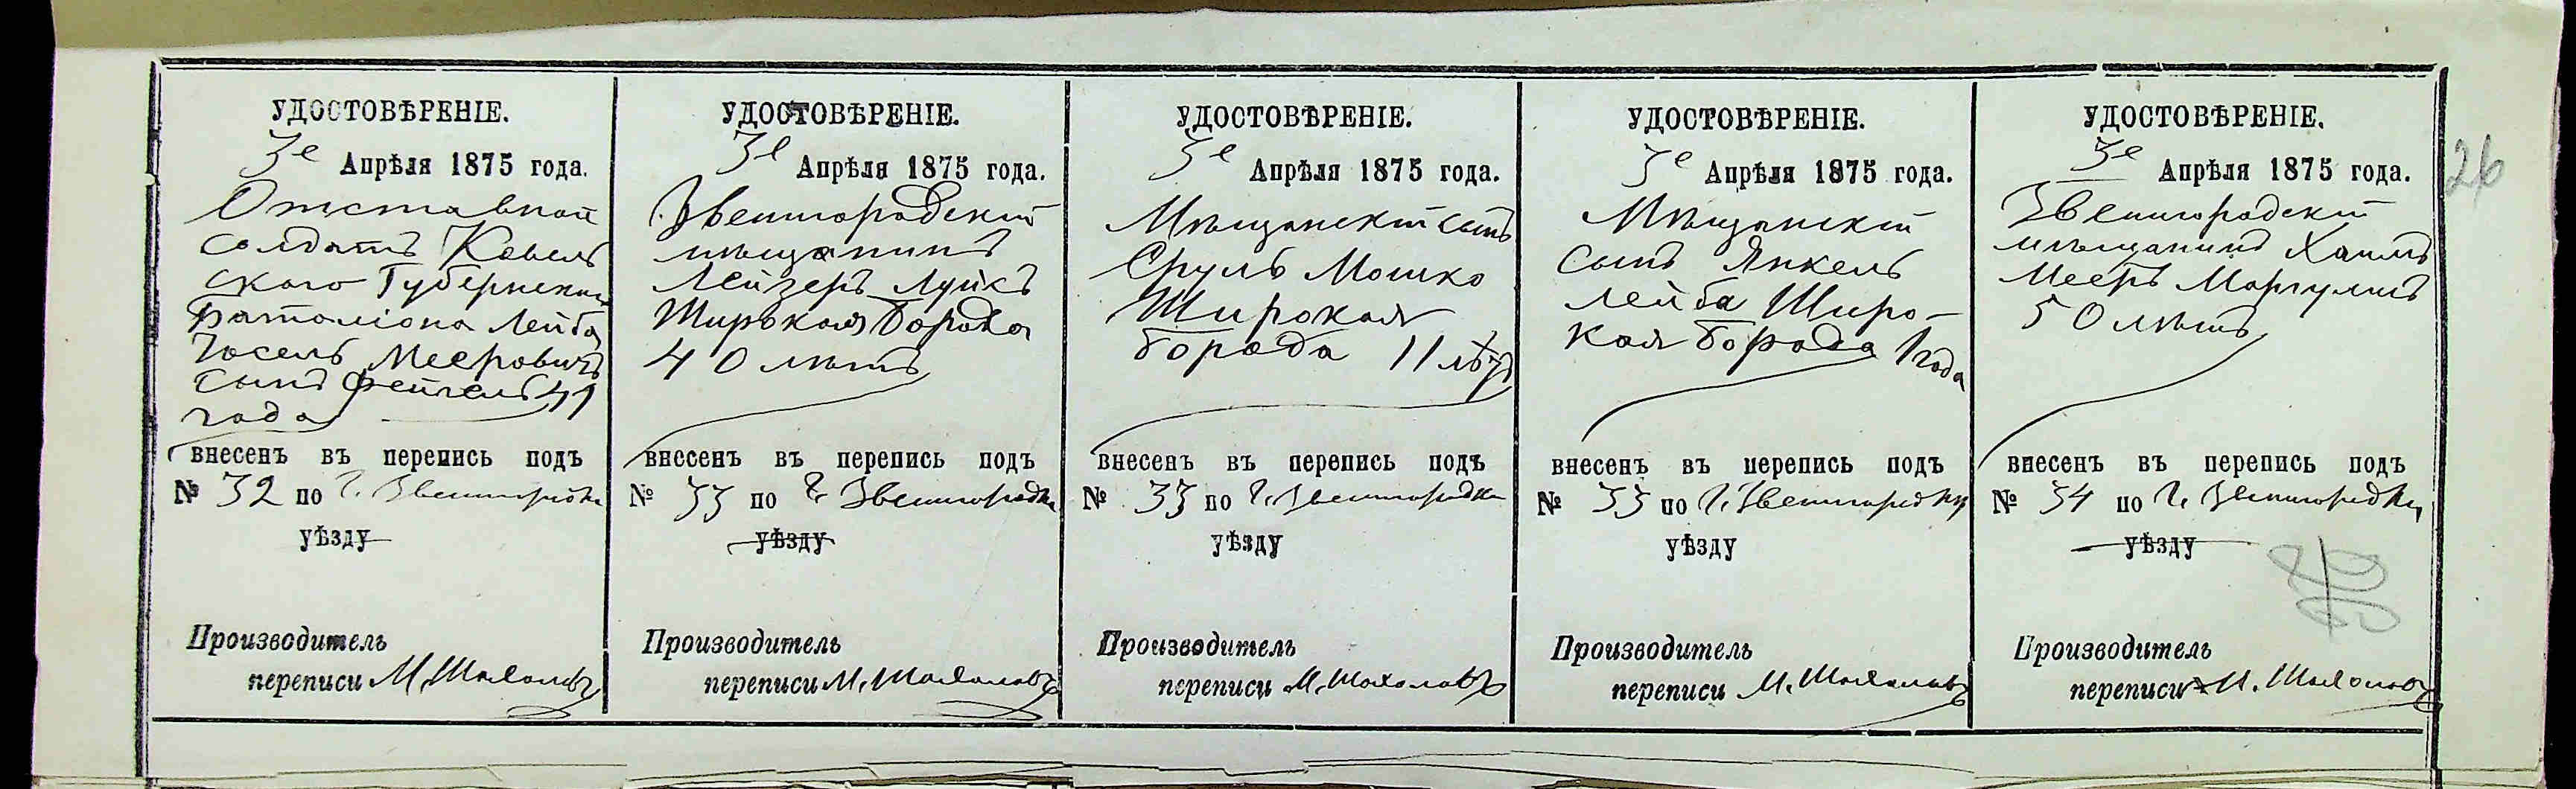 УДОСТОВѢРЕНІЕ.
3е Апрѣля 1875 года.
Отставной
солдатъ Ковель
скаго Губернскаго
Баталіона Лейба
Іосель Мееровичъ
сынъ Фейгель 41
года
внесенъ въ перепись подъ
№ 32 по г. Звенигородкѣ
уѣзду
Производитель
переписи М.
УДОСТОВѢРЕНІЕ.
3е Апрѣля 1875 года.
Звенигородскій
мѣщанинъ
Лейзеръ
Широкая Борода
40 лѣтъ
внесенъ въ перепись подъ
№ 33 по г. Звенигородкѣ
уѣзду
Производитель
переписи М.
УДОСТОВѢРЕНІЕ.
3е Апрѣля 1875 года.
Мѣщанскій сынъ
Сруль Мошко
Широкая
борода 11 лѣтъ
внесенъ въ перепись подъ
№ 33 по г. Звенигородкѣ
уѣзду
Производитель
переписи М.
УДОСТОВѢРЕНІЕ.
3е Апрѣля 1875 года.
Мѣщанскій
сынъ Янкель
Лейба Широ-
кая борода 1 года
внесенъ въ перепись подъ
№ 33 по г. Звенигородкѣ
уѣзду
Производитель
переписи М.
УДОСТОВѢРЕНІЕ.
3е Апрѣля 1875 года.
Звенигородскій
мѣщанинъ Хаимъ
Мееръ Маргулисъ
50 лѣтъ
внесенъ въ перепись подъ
№ 34 по г. Звенигородкѣ
уѣзду
Производитель
переписи М.
26